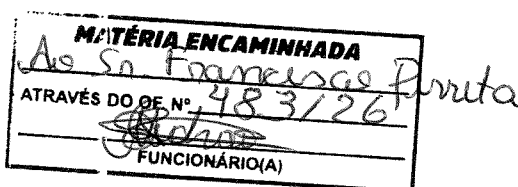 MATÉRIA ENCAMINHADA
Ao Sr. Francisco
ATRAVÉS DO OF. Nº 483/26
FUNCIONÁRIO(A)